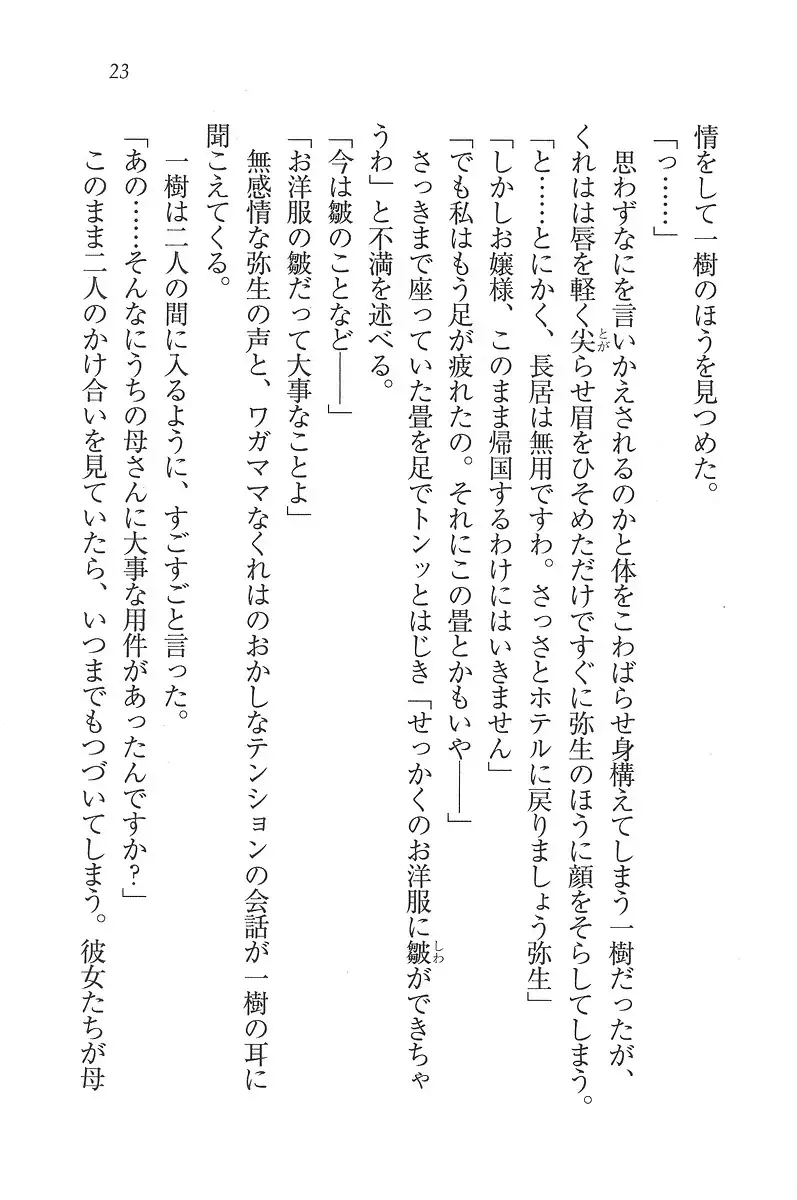 23
情をして一樹のほうを見つめた。
「っ……」
思わずなにを言いかえされるのかと体をこわばらせ身構えてしまう一樹だったが、
くれはは唇を軽く尖らせ眉をひそめただけですぐに弥生のほうに顔をそらしてしまう。
「と……とにかく、長居は無用ですわ。さっさとホテルに戻りましょう弥生」
「しかしお嬢様、このまま帰国するわけにはいきません」
「でも私はもう足が疲れたの。それにこの畳とかもいや――」
さっきまで座っていた畳を足でトンッとはじき「せっかくのお洋服に皺ができちゃ
うわ」と不満を述べる。
「今は皺のことなど――」
「お洋服の皺だって大事なことよ」
無感情な弥生の声と、ワガママなくれはのおかしなテンションの会話が一樹の耳に
聞こえてくる。
一樹は二人の間に入るように、すごすごと言った。
「あの……そんなにうちの母さんに大事な用件があったんですか？」
このまま二人のかけ合いを見ていたら、いつまでもつづいてしまう。彼女たちが母